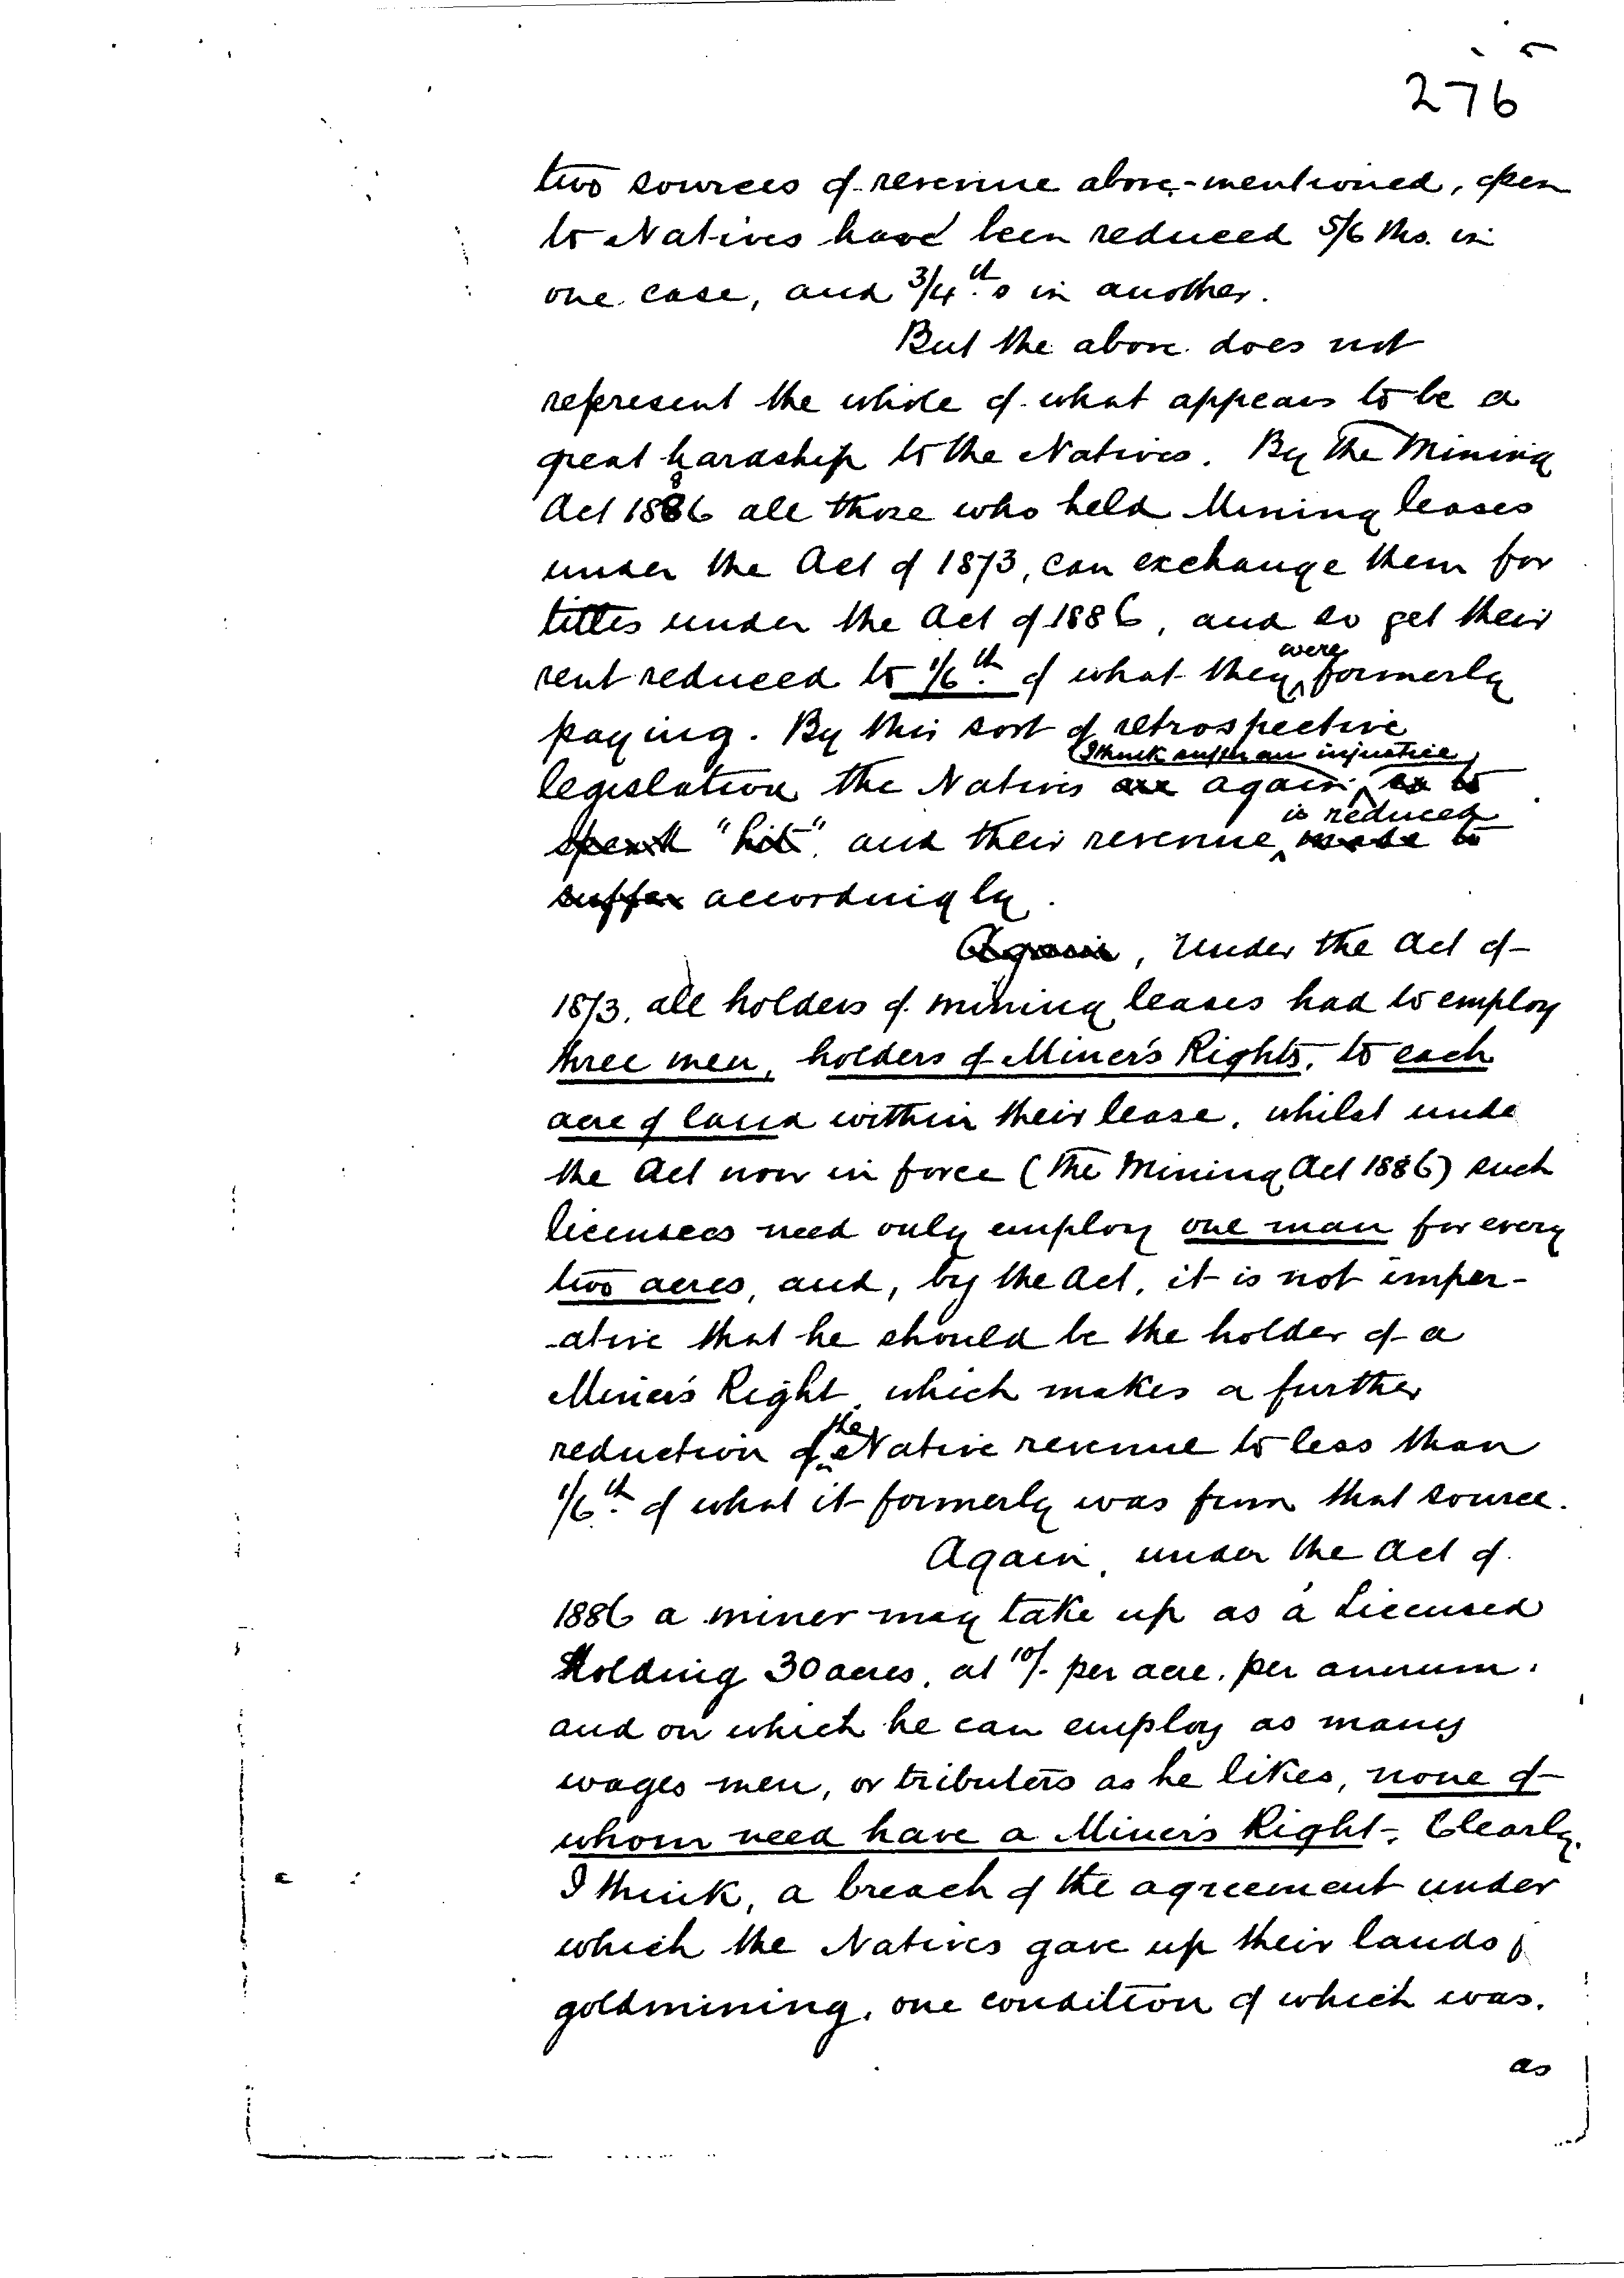 276
two sources of revenue above-mentioned, open
to Natives have been reduced 5/6 ths. in
one case, and 3/4th.s in another.
But the above does not
represent the whole of what appears to be a
great hardship to the Natives. By the Mining
Act 1886 all those who held Mining leases
under the Act of 1873, can exchange them for
titles under the Act of 1886, and so get their
rent reduced to 1/6th. of what they were formerly
paying. By this sort of retrospective
legislation the Natives are again (I think suffer an injustice) so to
speak "hit" and their revenue is reduced made to
suffer accordingly.
Again, Under the Act of
1873, all holders of mining leases had to employ
three men, holders of Miner's Rights, to each
acre of land within their lease, whilst unde
the Act now in force (The Mining Act 1886) such
licensees need only employ one man for every
two acres, and, by the Act, it is not imper-
-ative that he should be the holder of a
Miner's Right, which makes a further
reduction of the Native revenue to less than
1/6th. of what it formerly was from that source.
Again, under the Act of
1886 a miner may take up as a Licensed
Holding 30 acres, at 10/- per acre, per annum,
and on which he can employ as many
wages men, or tributers as he likes, none of
whom need have a Miner's Right-, Clearly,
I think, a breach of the agreement under
which the Natives gave up their lands f
goldmining, one condition of which was,
as